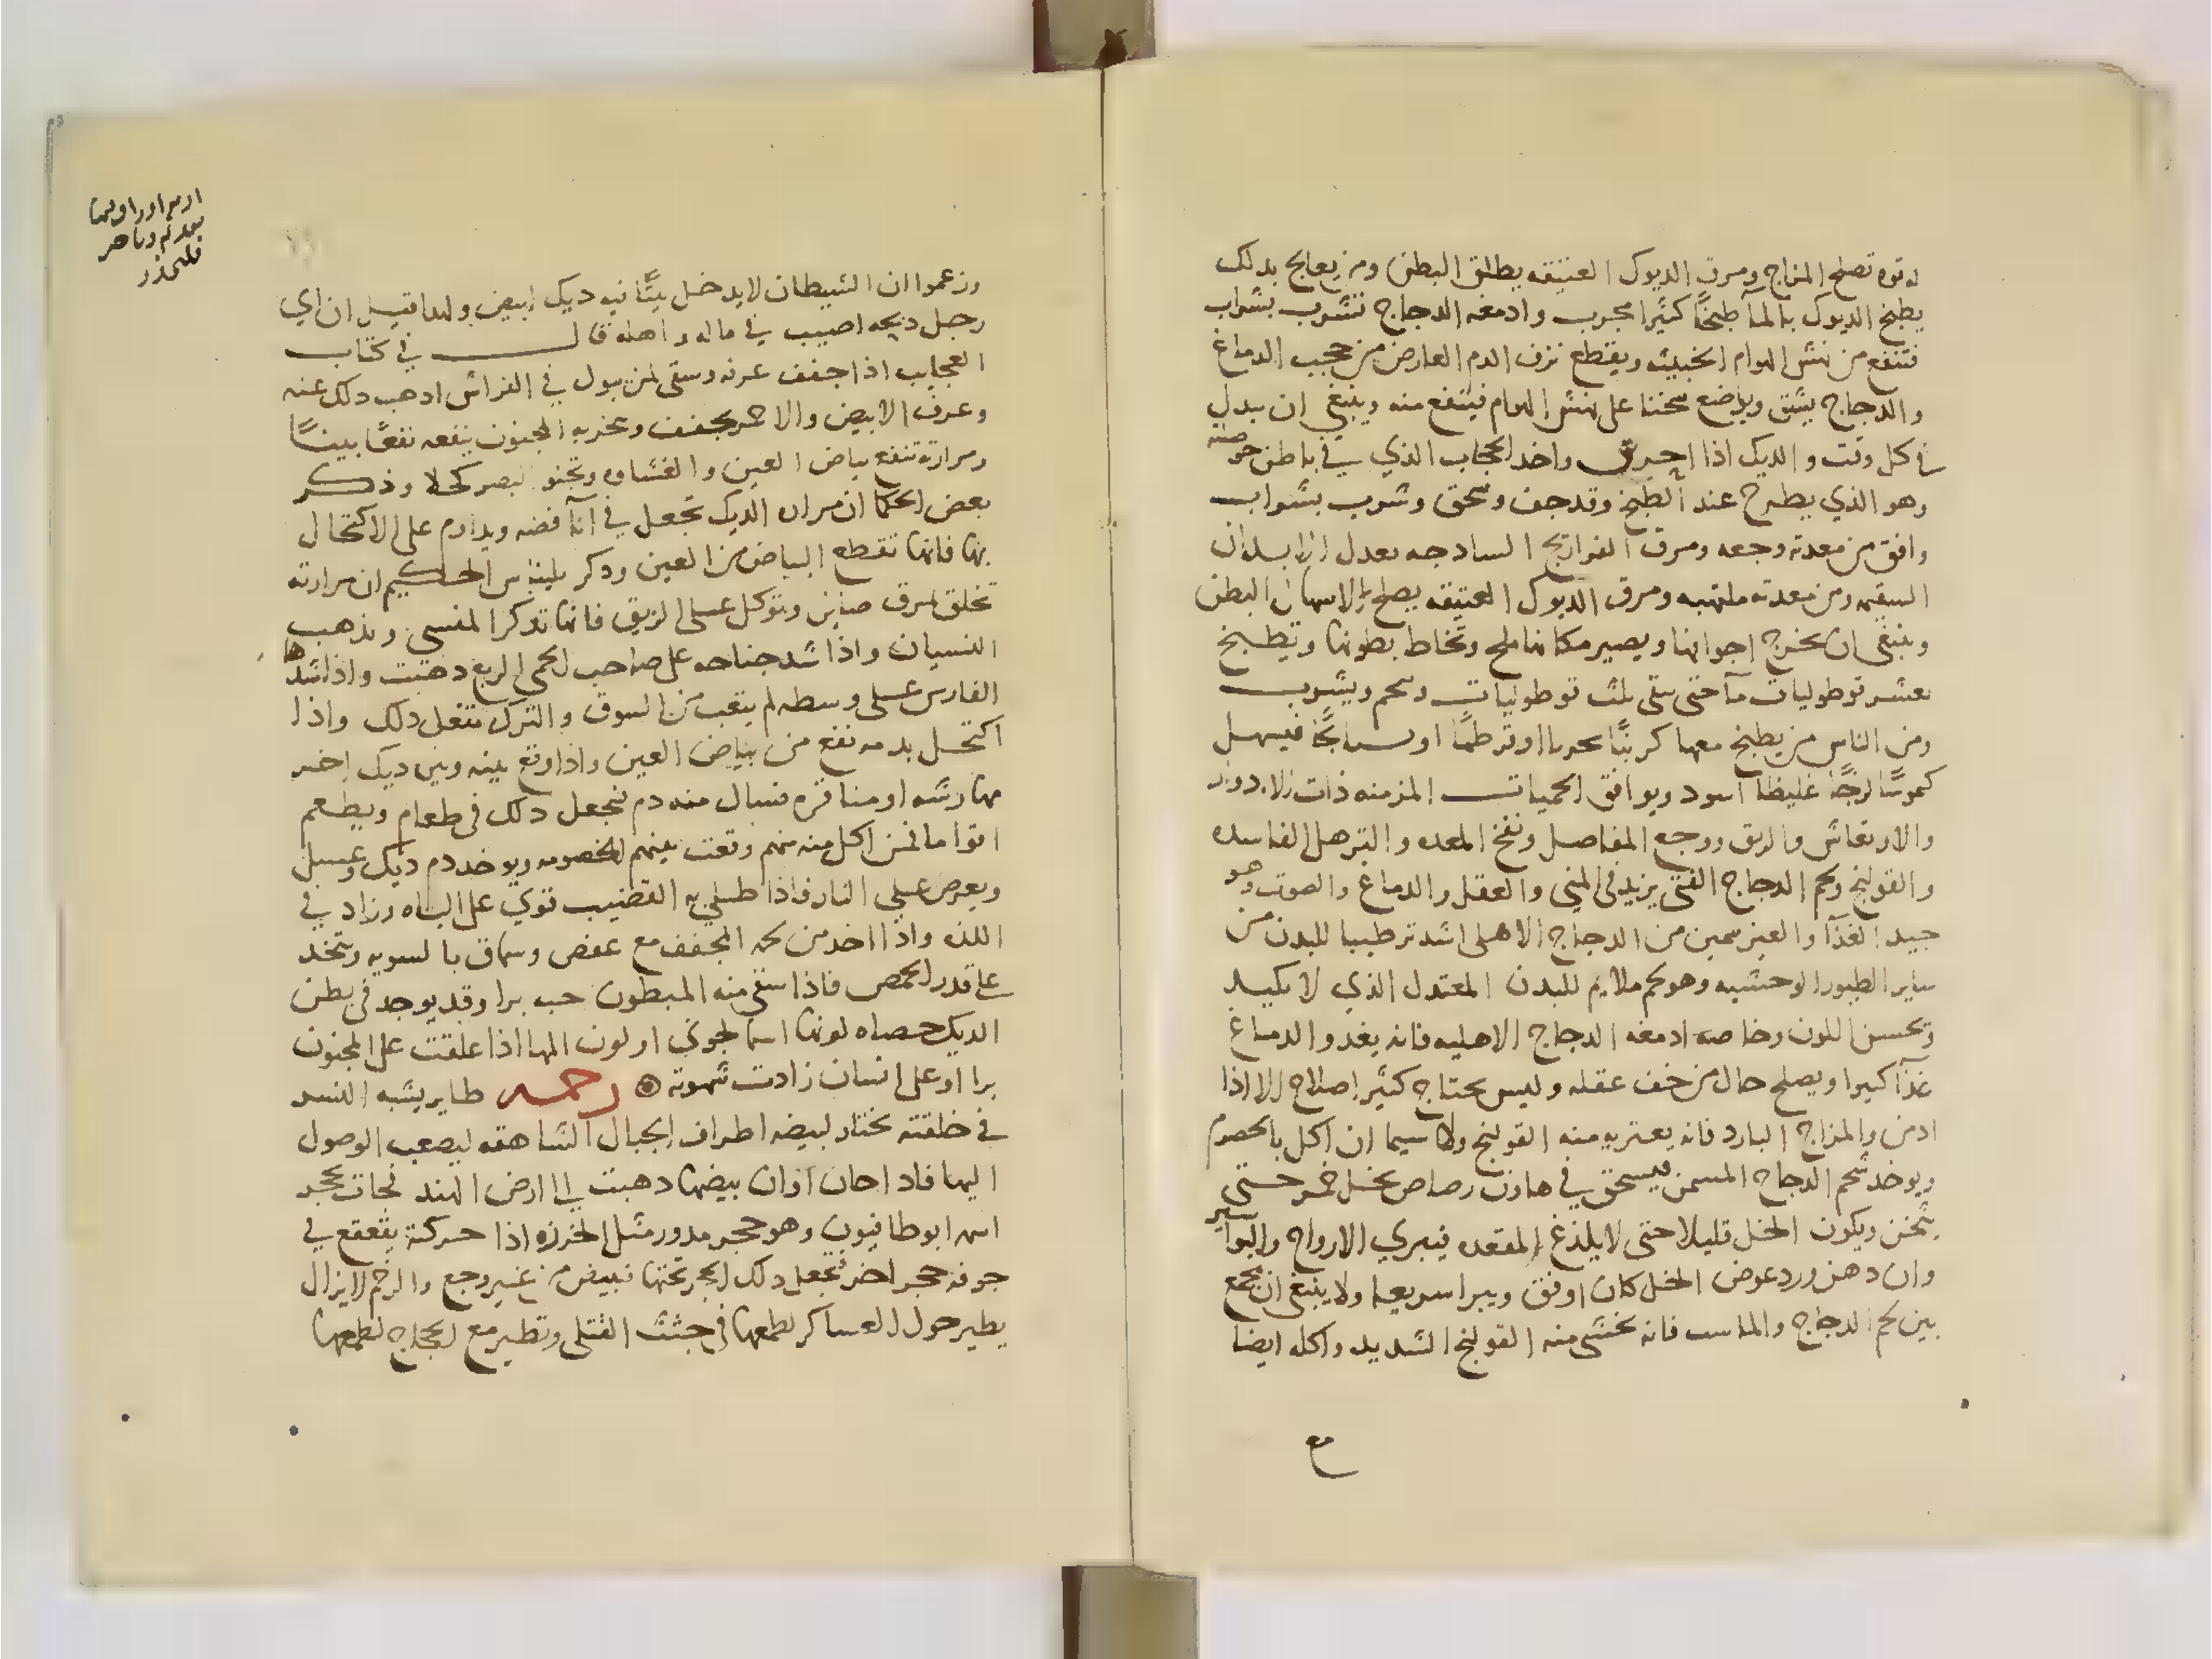 له قوه تصلح المزاج ومرق الديوك العتيقه يطلق البطن ومن يعالج بدلك
يطبخ الديوك بالمآ طبخًا كثيرا مجرب وادمغه الدجاج تشرب بشراب
فتنفع من نهش الهوام الخبيثه ويقطع نزف الدم العارض من حجب الدماغ
والدجاج يشق ويوضع سخنا على نهش الهوام فينفع منه وينبغي ان يبدل
في كل وقت والديك اذا احرق واخد الحجاب الذي في باطن حوصلته
وهو الذي يطرح عند الطبخ وقد جفف وسحق وشرب بشراب
وافق من معدته وجعه ومرق الفراريج السادجه يعدل الابدان
السقيمه ومن معدته ملتهبه ومرق الديوك العتيقه يصلح لاسهال البطن
وينبغي ان يخرج اجوافها ويصير مكانها ملح وتخاط بطونها وتطبخ
بعشر قوطوليات مآ حتى يبقى ثلث قوطوليات ويشرب
ومن الناس من يطبخ معها كرنبًا بحريا او قرطمًا او بسبايجًا فيسهل
كموسًا لزجًا غليظا اسود ويوافق الحميات المزمنه ذات الادوار
والارتعاش والربو ووجع المفاصل ونفخ المعده والترهل الفاسده
والقولنج ولحم الدجاج الفتى يزيد في المني والعقل والدماغ والصوت وهو
جيد الغذآ والغير سمين من الدجاج الاهلى اشد ترطيبا للبدن من
ساير الطيور الوحشيه وهو لحم ملايم للبدن المعتدل الذي لا يكيد
وتحسن اللون وخاصه ادمغه الدجاج الاهليه فانه يغدوا الدماغ
غذآ كبيرا ويصلح حال من خف عقله وليس يحتاج كثير اصلاح الا اذا
ادمن والمزاج البارد فانه يعتريه منه القولنج ولا سيما ان اكل بالحصرم
ويوخد شحم الدجاج المسمن فيسحق في هاون رصاص بخل خمر حتى
يثخن ويكون الخل قليلا حتى لا يلذع المقعده فيبري الارواح والبواسير
وان دهن ورد عوض الخل كان اوفق ويبرا سريعا ولا ينبغي ان يجمع
بين لحم الدجاج والماست فانه يخشى منه القولنج الشديد واكله ايضا
مع
وزعموا ان الشيطان لا يدخل بيتًا فيه ديك ابيض ولهدا قيل ان اي
رجل دبحه اصيب في ماله واهله قال في كتاب
العجايب اذا جفف عرفه وسقى لمن يبول في الفراش ادهب دلك عنه
وعرف الابيض والاحمر يجفف وبخر به المجنون ينفعه نفعًا بينًا
ومرارته تنفع بياض العين والغشاوه وتجلو البصر كحلا وذكر
بعض الحكما ان مراره الديك تجعل في انآ فضه ويداوم على الاكتحال
بها فانها تقطع البياض من العين ودكر بلينياس الحكيم ان مرارته
تخلط بمرق ضاين وتوكل على الريق فانها تدكر المنسى وتذهب
النسيان واذا شد جناحه على صاحب الحمى الربع دهبت واذا شدها
الفارس على وسطه لم يتعب من السوق والترك تفعل دلك واذا
اكتحل بدمه نفع من بياض العين واذا وقع بينه وبين ديك اخر
مهارشه او مناقره فسال منه دم فيجعل دلك في طعام ويطعم
اقواما فمن اكل منه منهم وقعت بينهم الخصومه ويوخد دم ديك وعسل
ويعرض على النار فاذا طلي به القضيب قوي على الباه وزاد في
اللذه واذا اخد من لحمه المجفف مع عفص وسماق بالسويه ويتخد
على قدر الحمص فاذا سقي منه المبطون حبه برا وقد يوجد في بطن
الديك حصاه لونها اسمانجوني او لون المها اذا علقت على المجنون
برا او على انسان زادت شهوته ۞ رخمه طاير يشبه النسر
في خلقته تختار لبيضه اطراف الجبال الشاهقه ليصعب الوصول
اليها فاذا حان اوان بيضها دهبت الى ارض الهند فجات بحجر
اسمه ابوطاقيون وهو حجر مدور مثل الخرزه اذا حركته يقعقع في
جوفه حجر اخر فتجعل دلك الحجر تحتها فتبيض من غير وجع والرخم لا يزال
يطير حول العساكر لطمعها في جثث القتلى وتطير مع الحجاج لطمعها